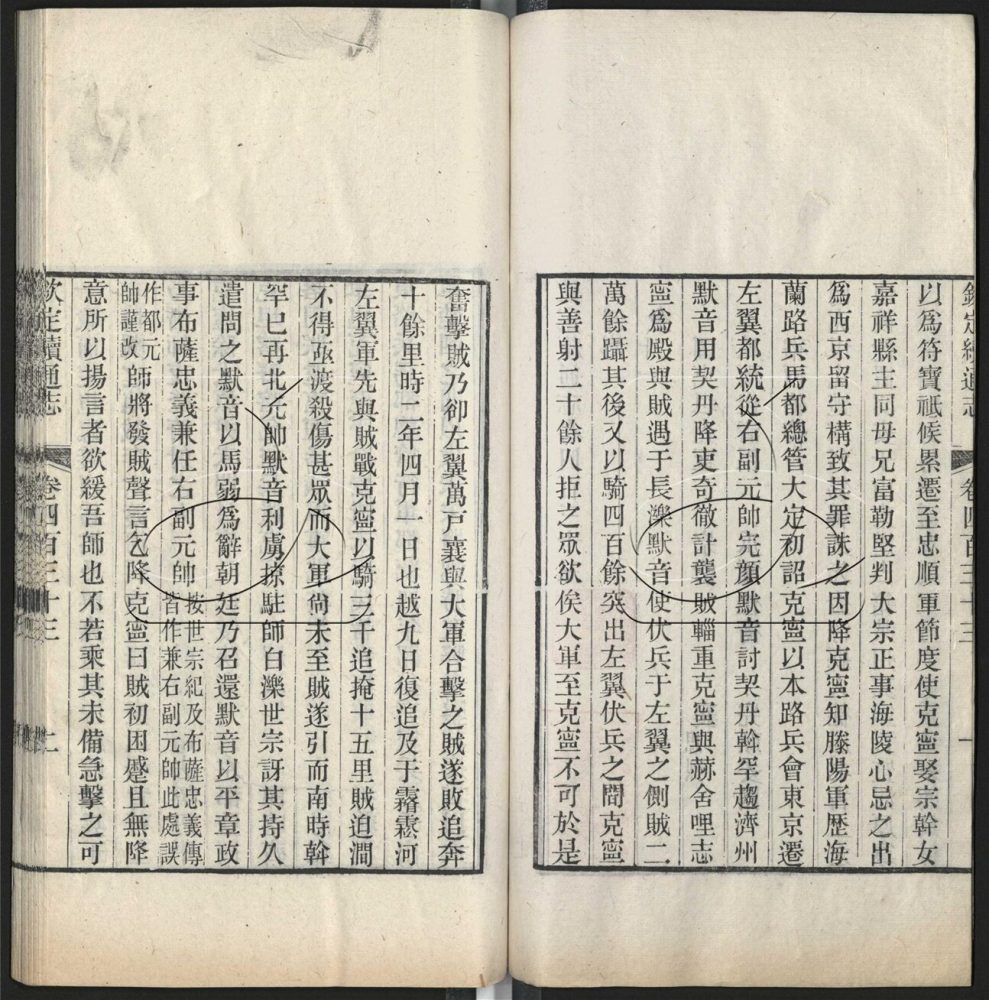 欽定續通志 卷四百三十三 一
以為符寶祗候累遷至忠順軍節度使克寧娶宗幹女
嘉祥縣主同母兄富勒堅判大宗正事海陵心忌之出
為西京留守構致其罪誅之因降克寧知滕陽軍歷海
蘭路兵馬都總管大定初詔克寧以本路兵會東京遷
左翼都統從右副元帥完顏默音討契丹斡罕趨濟州
默音用契丹降吏奇徹計襲賊輜重克寧與赫舍哩志
寧為殿與賊遇于長濼默音使伏兵于左翼之側賊二
萬餘躡其後又以騎四百餘突出左翼伏兵之間克寧
與善射二十餘人拒之眾欲俟大軍至克寧不可於是
奮擊賊乃卻左翼萬戶襄與大軍合擊之賊遂敗追奔
十餘里時二年四月一日也越九日復追及于霿鬆河
左翼軍先與賊戰克寧以騎三千追掩十五里賊迫澗
不得亟渡殺傷甚眾而大軍尚未至賊遂引而南時斡
罕已再北元帥默音利虜掠駐師白濼世宗訝其持久
遣問之默音以馬弱為辭朝廷乃召還默音以平章政
事布薩忠義兼任右副元帥按世宗紀及布薩忠義傳皆作兼右副元帥此處誤
作都元帥謹改師將發賊聲言乞降克寧曰賊初困蹙且無降
意所以揚言者欲緩吾師也不若乘其未備急擊之可
欽定續通志 卷四百三十三 二